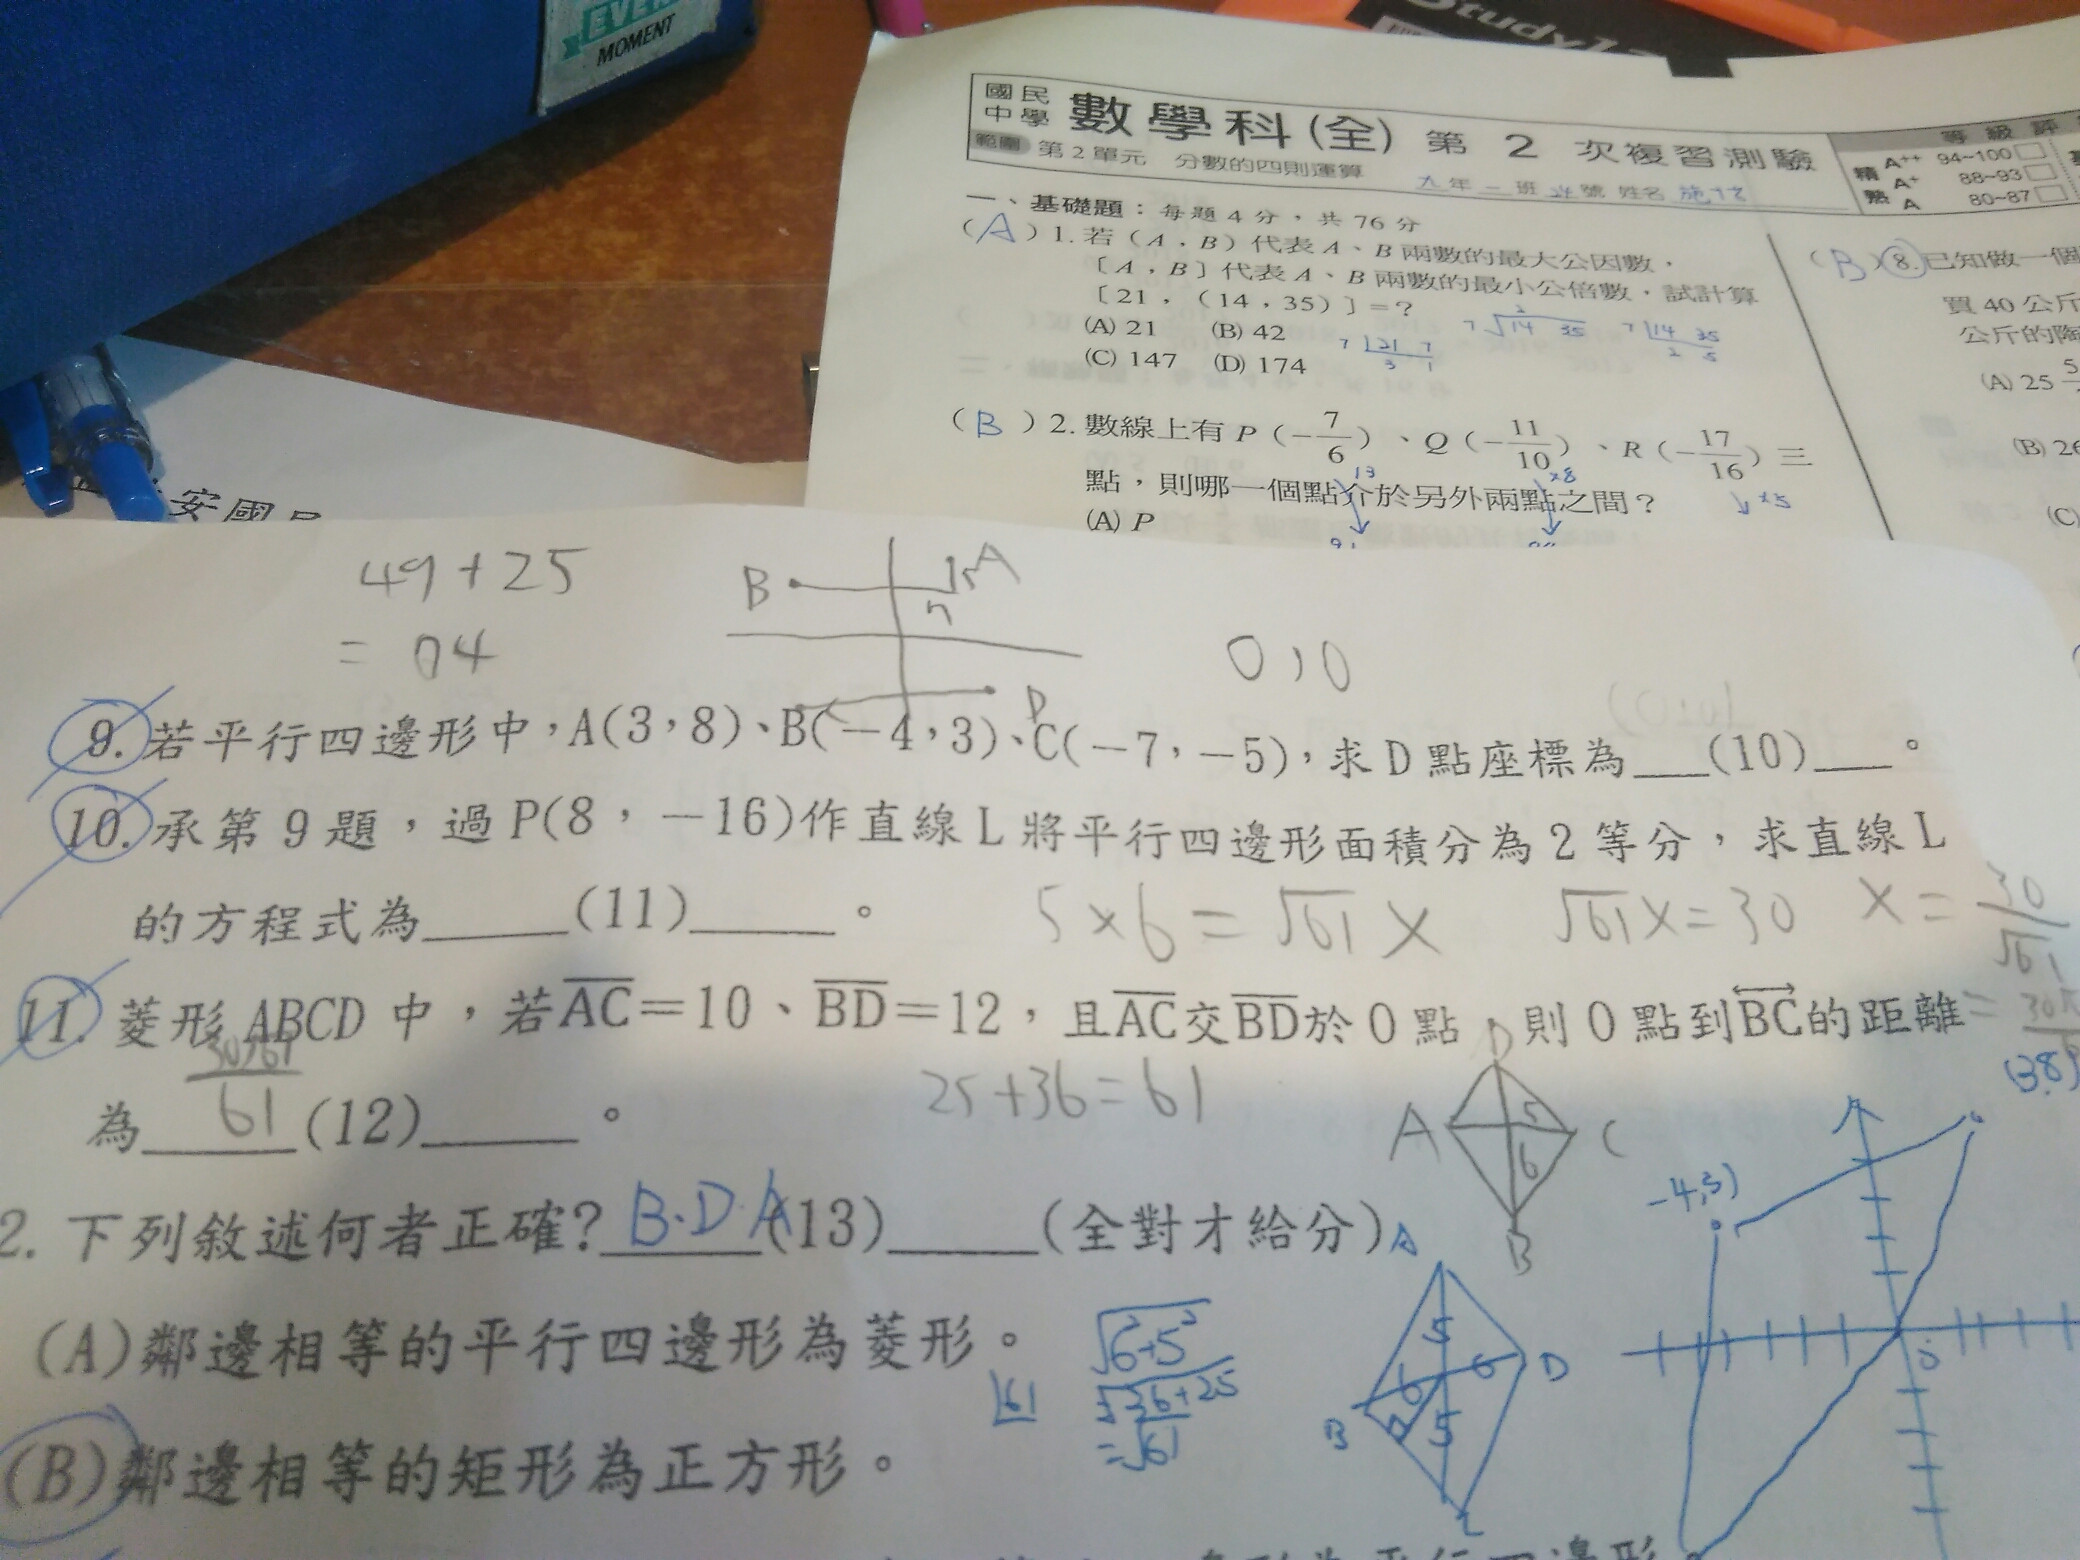 EVERY
MOMENT
國民中學 數學科(全) 第 2 次複習測驗
範圍 第2單元 分數的四則運算
九年二班 號 姓名
等級評
精熟
A++ 94~100
A+ 88~93
A 80~87
一、基礎題：每題4分，共76分
(A) 1. 若（A，B）代表A、B兩數的最大公因數，
〔A，B〕代表A、B兩數的最小公倍數，試計算
〔21，（14，35）〕=？
(A) 21 (B) 42
(C) 147 (D) 174
7 21 7
3 1
7 14 35
7 14 35
2 5
(B) 2. 數線上有 P（-7/6）、Q（-11/10）、R（-17/16）三
點，則哪一個點介於另外兩點之間？
(A) P
×8
×5
(B) 8. 已知做一個
買40公斤
公斤的陶
(A) 25
(B) 26
(C)
安國
49+25
= 74
B A
D
0,0
9. 若平行四邊形中，A(3，8)、B(－4，3)、C(－7，－5)，求D點座標為___(10)___。
10. 承第9題，過P(8，－16)作直線L將平行四邊形面積分為2等分，求直線L
的方程式為_____(11)_____。
5×6=√61 X √61 X=30 X=30/√61
11. 菱形ABCD中，若AC=10、BD=12，且AC交BD於O點，則O點到BC的距離
為_____(12)_____。
30√61/61
25+36=61
D
A 5 C
6
B
2. 下列敘述何者正確?_____(13)_____(全對才給分)
B.D.A
(A)鄰邊相等的平行四邊形為菱形。
(B)鄰邊相等的矩形為正方形。
√6²+5²
=√36+25
=√61
√61
A
5
6 6 D
B 5
(3,8)
-4,3)